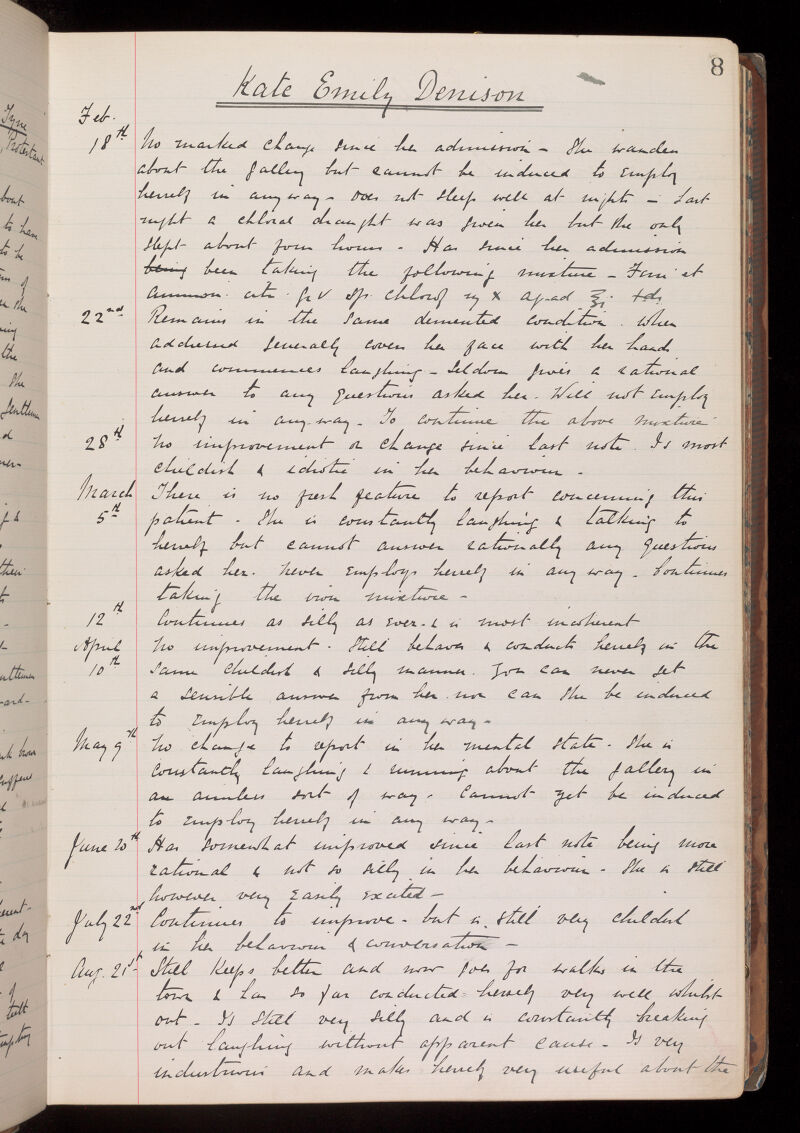 8
Kate Emily Denison
Feb.
18th No marked change since her admission - She wanders
about the gallery but cannot be induced to employ
herself in any way - does not sleep well at nights - Last
night a chloral draught was given her but she only
slept about four hours - Has since her admission
being been taking the following mixture - Ferri et
ammon. cit. gr V sp. chlorof ɱ x aq. ad ℥j tds
22nd Remains in the same demented condition. When
addressed generally covers her face with her hands
and commences laughing - Seldom gives a rational
answer to any questions asked her. Will not employ
herself in any way. To continue the above mixture
28th No improvement or change since last note. Is most
childish & idiotic in her behaviour -
March There is no fresh feature to report concerning this
5th patient - She is constantly laughing & talking to
herself but cannot answer rationally any questions
asked her. Never employs herself in any way - Continues
taking the iron mixture -
12th Continues as silly as ever - & is most incoherent
April No improvement - Still behaves & conducts herself in the
10th same childish & silly manner. You can never get
a sensible answer from her nor can she be induced
to employ herself in any way -
May 9th No change to report in her mental state - She is
constantly laughing & running about the gallery in
an aimless sort of way - Cannot yet be induced
to employ herself in any way -
June 20th Has somewhat improved since last note being more
rational & not so silly in her behaviour - She is still
however very easily excited -
July 22nd Continues to improve - but is still very childish
in her behaviour & conversation -
Aug. 21st Still keeps better and now goes for walks in the
town & has so far conducted herself very well whilst
out - Is still very silly and is constantly breaking
out laughing without apparent cause - Is very
industrious and makes herself very useful about the